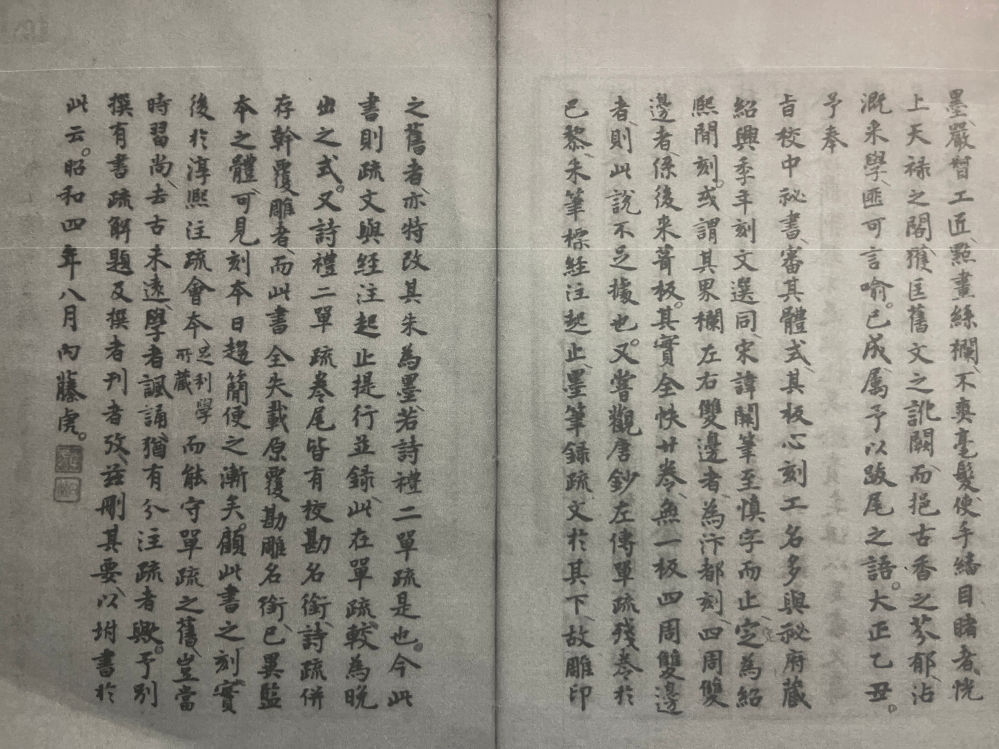 墨、嚴督工匠、點畫絲欄、不爽毫髮、使手繙目睹者、恍
上天祿之閣、獲匡舊文之訛闕、而挹古香之芬郁、沾
溉來學、匪可言喻。已成、属予以跋尾之語。大正乙丑、
予奉
旨校中祕書、審其體式、其板心刻工名、多與祕府藏
紹興季年刻文選同、宋諱闕筆至慎字而止、定為紹
熙閒刻。或謂其界欄左右雙邊者、為汴都刻、四周雙
邊者、係後來葺板。其實全帙廿卷、無一板四周雙邊
者、則此說不足據也。又嘗觀唐鈔左傳單疏殘卷、於
已黎、朱筆標經注起止、墨筆録疏文於其下、故雕印
之舊者、亦特改其朱為墨、若詩禮二單疏是也。今此
書則疏文與經注起止提行並録、此在單疏、較為晚
出之式。又詩禮二單疏卷尾皆有校勘名銜、詩疏併
存幹覆雕者、而此書全失載原覆勘雕名銜、已異監
本之體、可見刻本日趨簡便之漸矣。顧此書之刻、實
後於淳熙注疏會本足利學所藏而能守單疏之舊、豈當
時習尚、去古未遠、學者諷誦、猶有分注疏者歟。予別
撰有書疏解題及撰者刊者攷、茲刪其要、以坿書於
此云。昭和四年八月內藤虎。